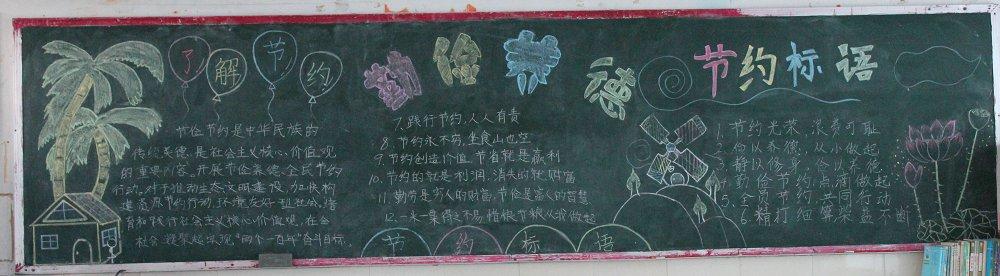 了解节约
节俭节约是中华民族的
传统美德,是社会主义核心价值观
的重要内容。开展节俭养德全民节约
行动,对于推动生态文明建设,加快构
建资源节约行动,环境友好型社会,培
育和践行社会主义核心价值观,在全
社会 凝聚起实现,“两个一百年”奋斗目标.
勤俭养德
7、践行节约,人人有责
8、节约永不穷,坐食山也空
9、节约创造价值,节省就是赢利
10、节约的就是利润,消失的就是财富
11、勤劳是穷人的财富,节俭是富人的智慧
12、一米一菜得之不易,惜粮节粮从俭做起
节约标语
节约标语
1、节约光荣,浪费可耻
2、俭以养德,从小做起
3、静以修身,俭以养德
4、勤俭节约,点滴做起
5、全员节约,共同行动
6、精打细算,柴盐不断